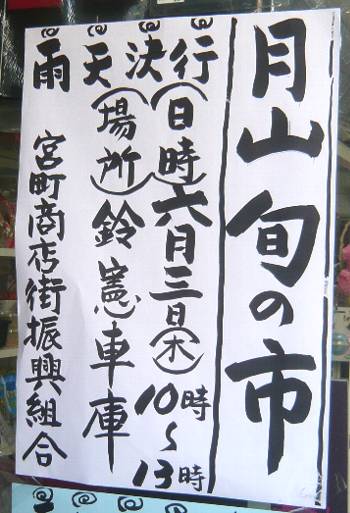 月山旬の市
雨天決行
(日時)六月三日(木)10時~13時
(場所)鈴憲車庫
宮町商店街振興組合